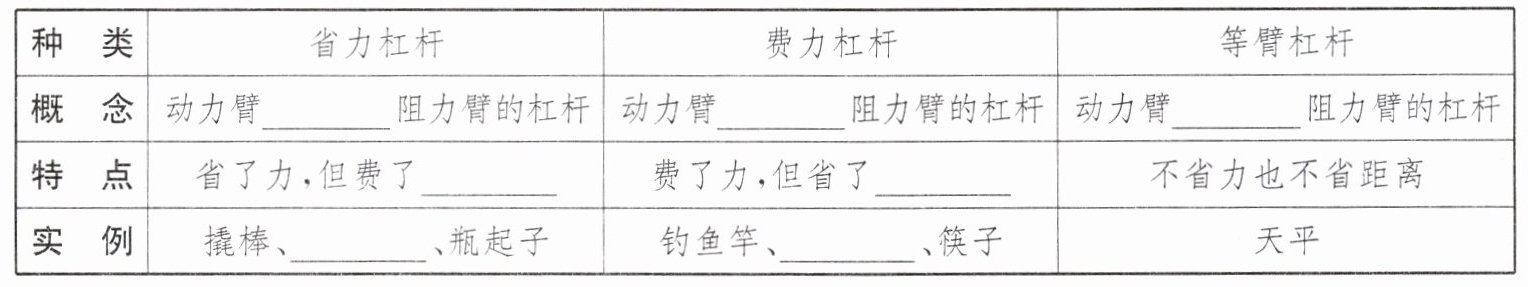 种 类 省力杠杆 费力杠杆 等臂杠杆
概 念 动力臂________阻力臂的杠杆 动力臂________阻力臂的杠杆 动力臂________阻力臂的杠杆
特 点 省了力,但费了________ 费了力,但省了________ 不省力也不省距离
实 例 撬棒、________、瓶起子 钓鱼竿、________、筷子 天平